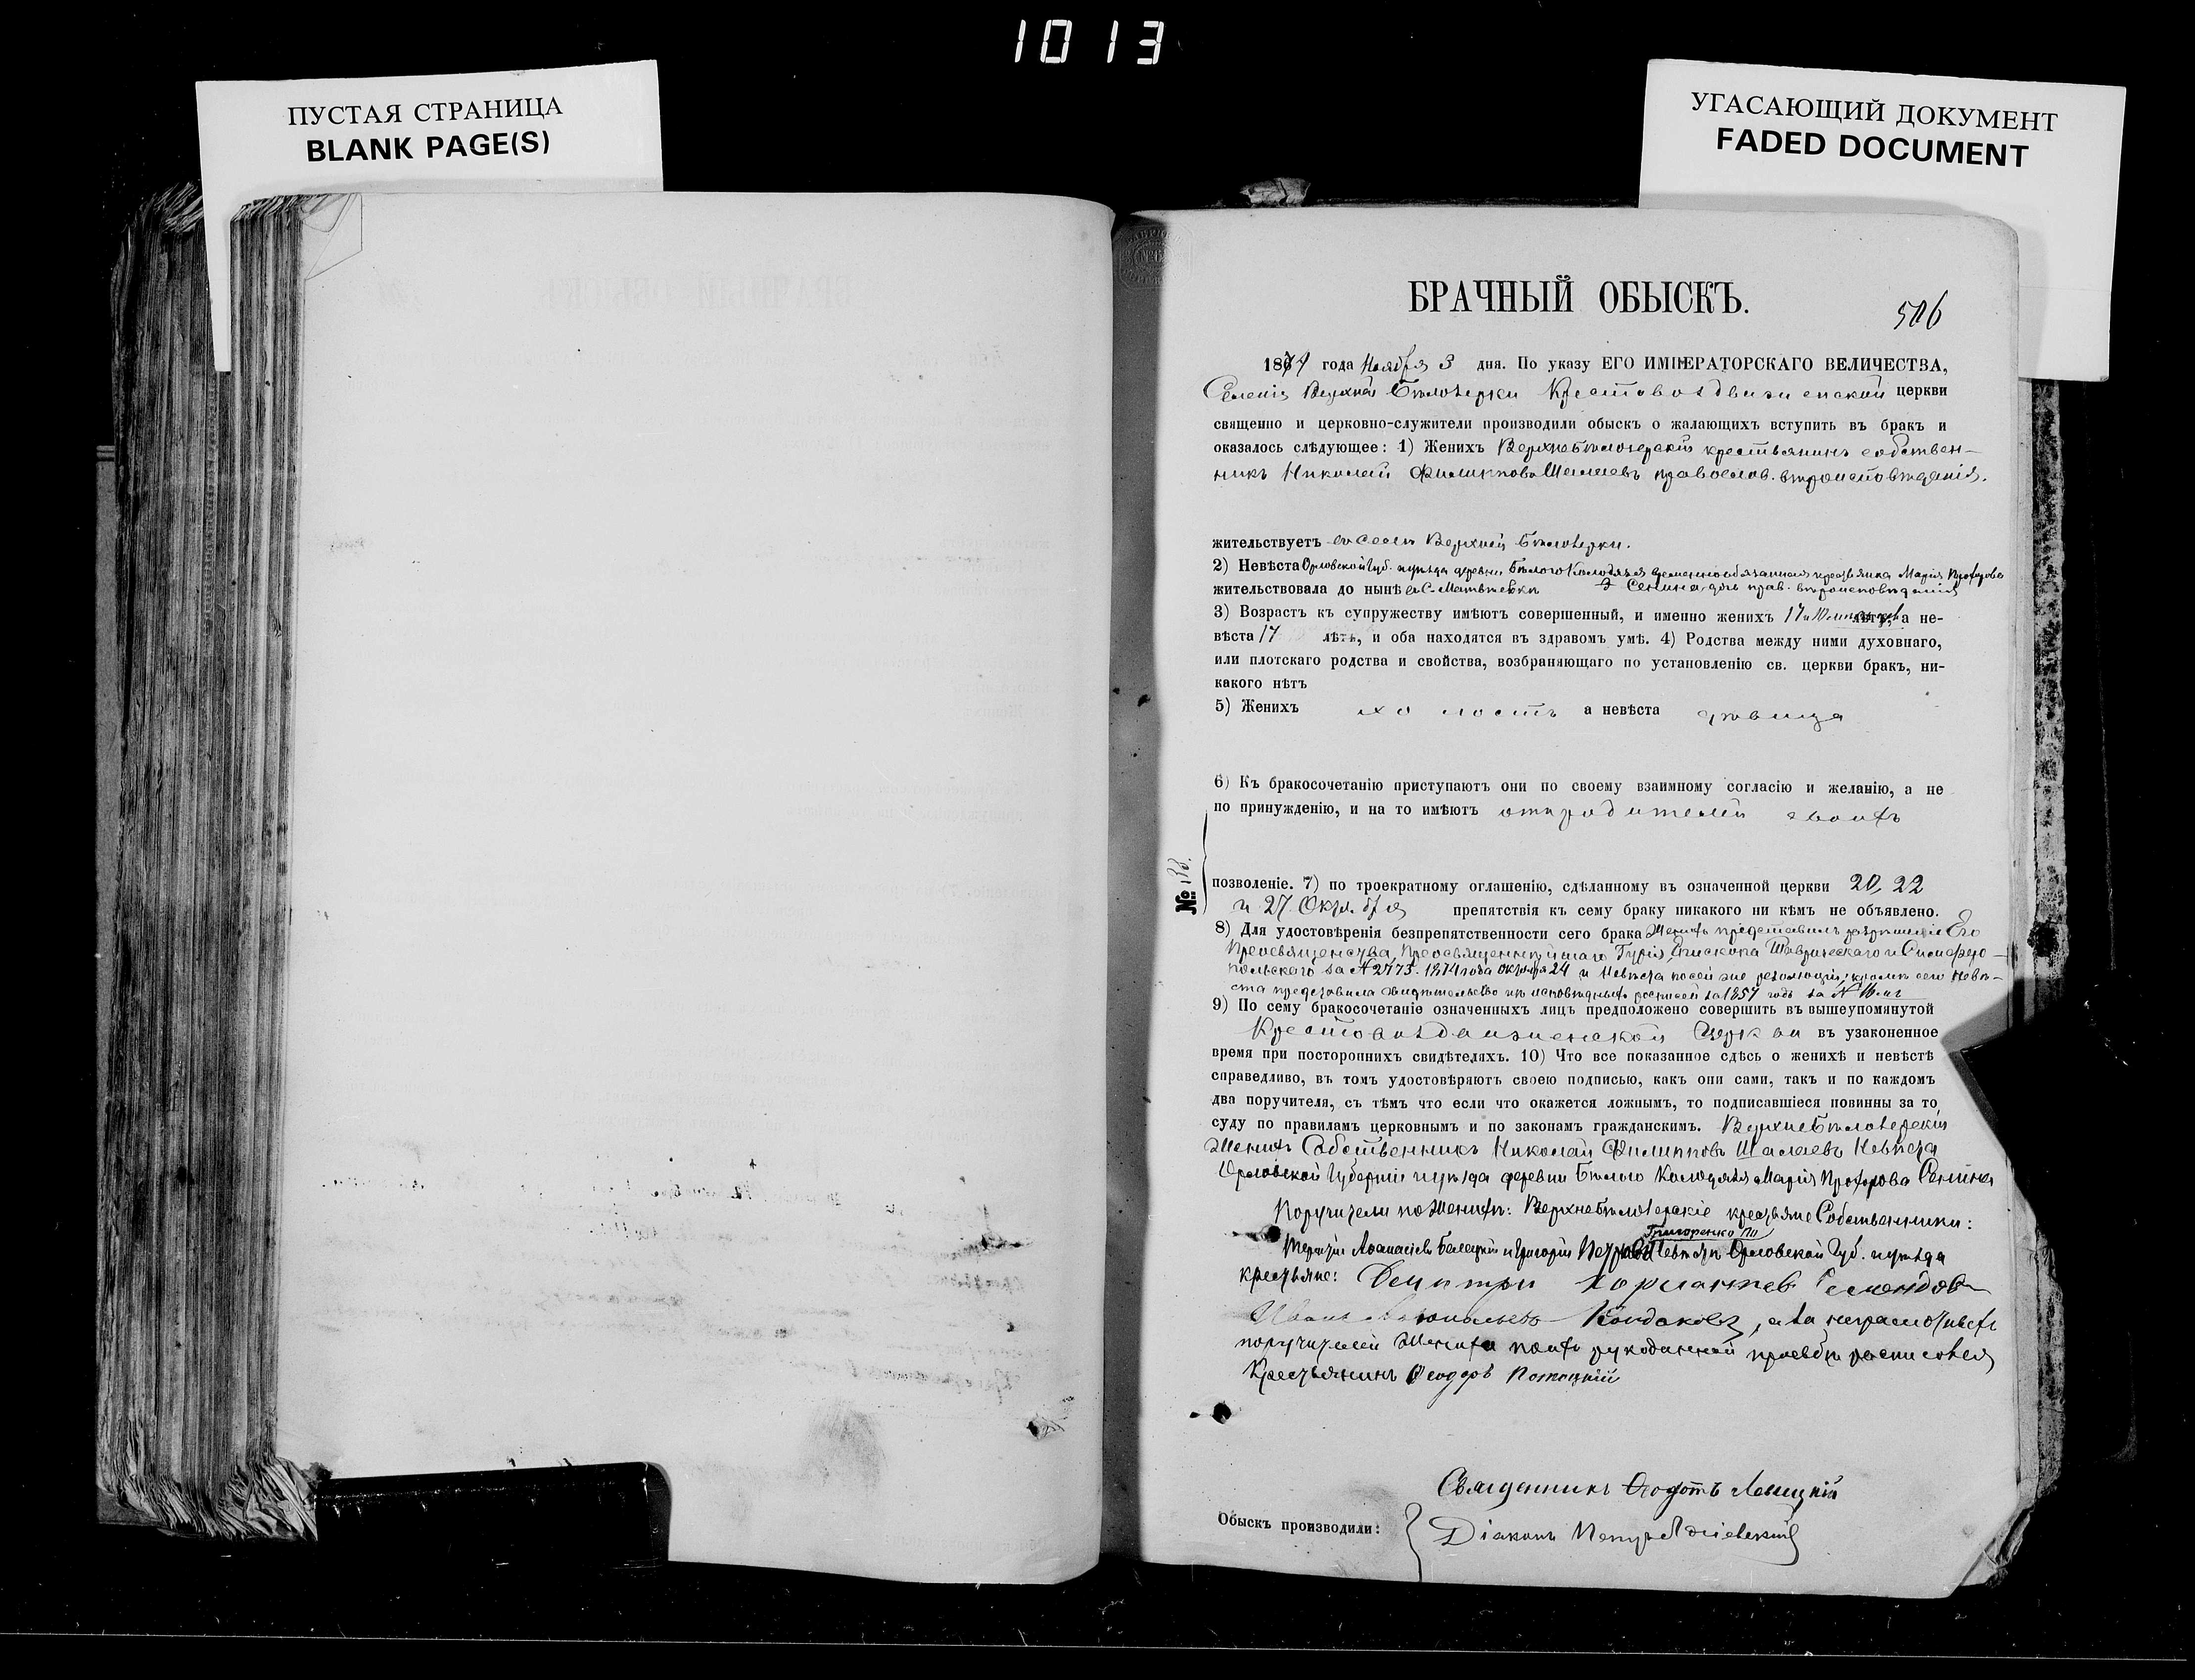 1013
ПУСТАЯ СТРАНИЦА
BLANK PAGE(S)
УГАСАЮЩИЙ ДОКУМЕНТ
FADED DOCUMENT
БРАЧНЫЙ ОБЫСКЪ.
506
1874 года Ноября 3 дня. По указу ЕГО ИМПЕРАТОРСКАГО ВЕЛИЧЕСТВА,
Селенія Верхней Бѣлозерки Крестовоздвиженской церкви
священно и церковно-служители производили обыскъ о жалающихъ вступить въ бракъ и
оказалось слѣдующее: 1) Женихъ Верхнебѣлозерскій крестьянинъ собствен-
никъ Николай Филипповъ Шалаевъ православ. вѣроисповѣданія.
жительствуетъ въ селѣ Верхней Бѣлозерки.
2) Невѣста Орловской Губ. и уѣзда деревни Бѣлого Колодязя временно обязанная крестьянка Марія Прохорова
жительствовала до нынѣ въ С. Матвѣевкѣ Сенина, дочь прав. вѣроисповѣданія
3) Возрастъ къ супружеству имѣютъ совершенный, и именно женихъ 17 и лѣтъ, а не-
вѣста 17 лѣтъ, и оба находятся въ здравомъ умѣ. 4) Родства между ними духовнаго,
или плотскаго родства и свойства, возбраняющаго по установленію св. церкви бракъ, ни-
какого нѣтъ
5) Женихъ холостъ а невѣста дѣвица
6) Къ бракосочетанію приступаютъ они по своему взаимному согласію и желанію, а не
по принужденію, и на то имѣютъ отъ родителей своихъ
№
позволеніе. 7) по троекратному оглашенію, сдѣланному въ означенной церкви 20, 22
и 27 Октября препятствія къ сему браку никакого ни кѣмъ не объявлено.
8) Для удостовѣренія безпрепятственности сего брака Женихъ представилъ разрѣшеніе Его
Преосвященства, Преосвященнѣйшаго Гурія, Епископа Таврическаго и Симферо-
польскаго за № 2773. 1874 года Октября 24 и Невѣста по сей же резолюціи, кромѣ сего Невѣ-
ста представила свидѣтельство изъ исповѣдныхъ росписей за 1857 годъ за №
9) По сему бракосочетаніе означенныхъ лицъ предположено совершить въ вышеупомянутой
Крестовоздвиженской Церкви въ узаконенное
время при постороннихъ свидѣтеляхъ. 10) Что все показанное сдѣсь о женихѣ и невѣстѣ
справедливо, въ томъ удостовѣряютъ своею подписью, какъ они сами, такъ и по каждомъ
два поручителя, съ тѣмъ что если что окажется ложнымъ, то подписавшіеся повинны за то
суду по правиламъ церковнымъ и по законамъ гражданскимъ. Верхнебѣлозерскій
Женихъ Собственникъ Николай Филипповъ Шалаевъ Невѣста
Орловской Губерніи и уѣзда деревни Бѣлого Колодязя Марія Прохорова Сенина
Поручители по Женихѣ: Верхнебѣлозерскіе крестьяне Собственники:
Григоренко По
Терентій Аѳанасіевъ Белецкій и Григорій Петровъ Невѣстѣ Орловской Губ. и уѣзда
крестьяне: Дмитри
Иванъ Кондаковъ, а за неграмотныхъ
поручителей Жениха по ихъ рукоданной прозьбѣ росписовся
Крестьянинъ Ѳеодоръ Потоцкій
Священникъ Ѳеодотъ Левицкій
Обыскъ производили:
Діаконъ Петръ